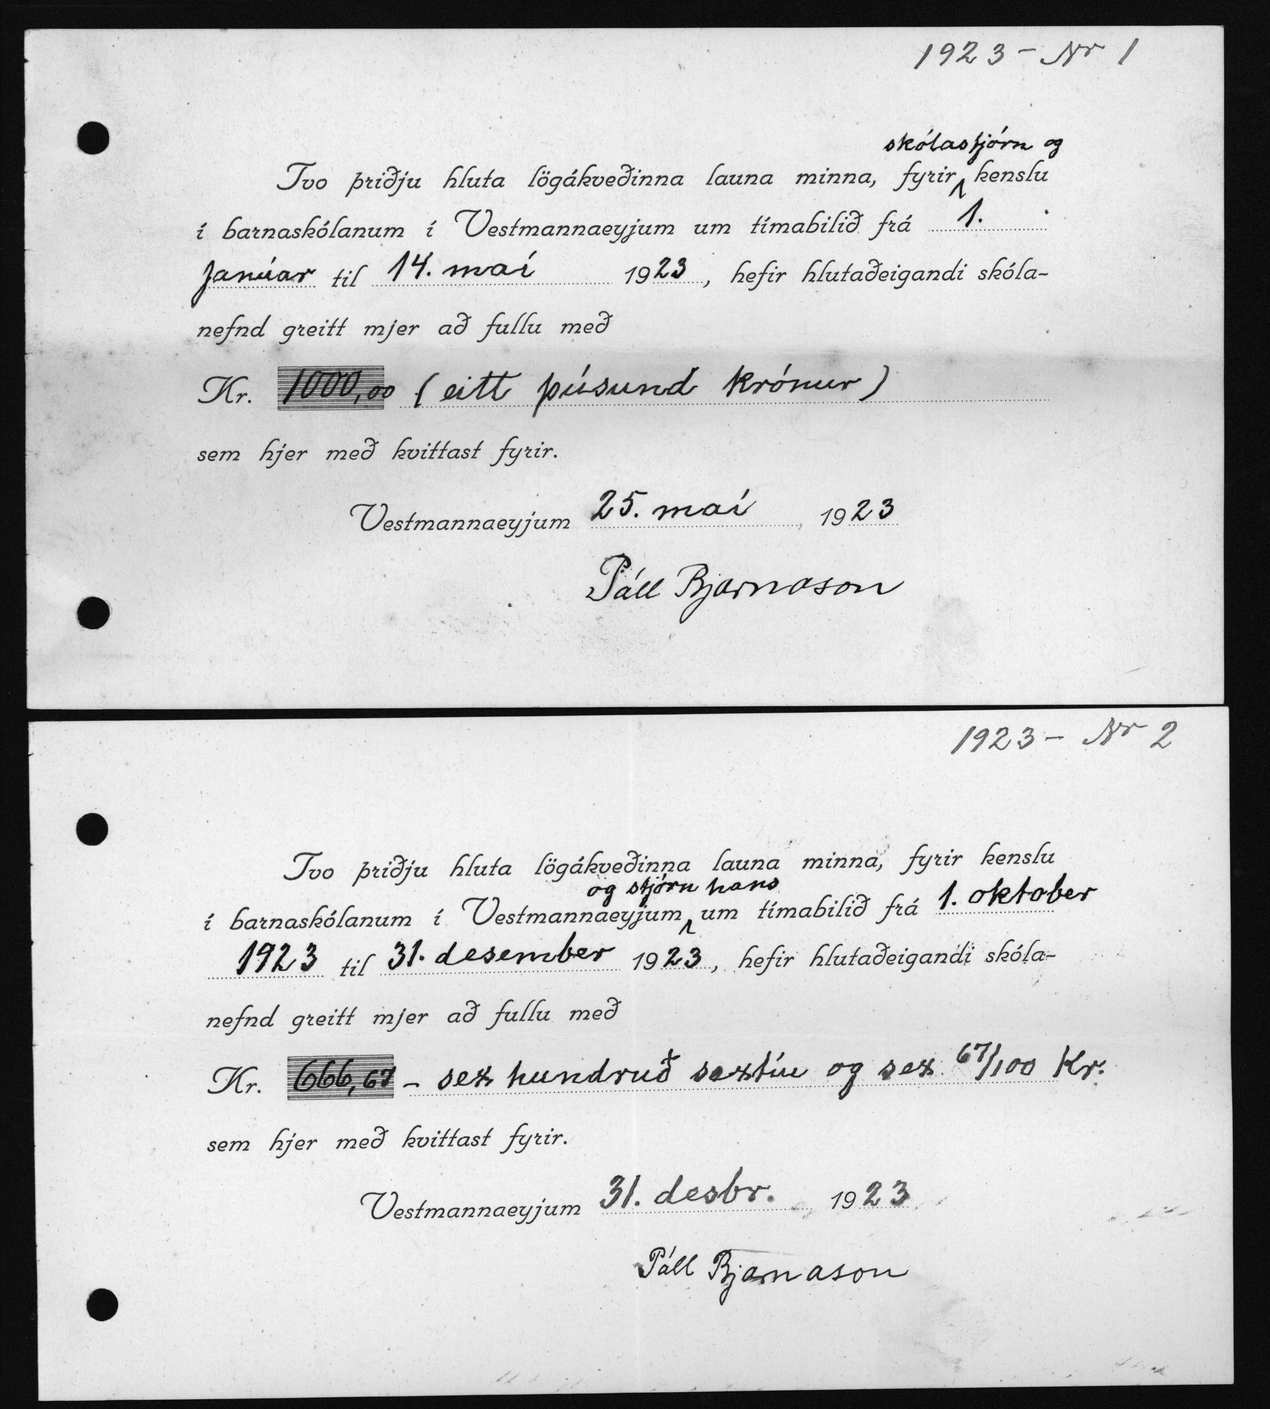 1923 - Nr 1
skólastjórn og
Tvo þriðju hluta lögákveðinna launa minna, fyrir kenslu
í barnaskólanum í Vestmannaeyjum um tímabilið frá 1.
janúar til 14. maí 1923, hefir hlutaðeigandi skóla-
nefnd greitt mjer að fullu með
Kr. 1000,00 (eitt þúsund krónur)
sem hjer með kvittast fyrir.
Vestmannaeyjum 25. maí, 1923
Páll Bjarnason
1923 - Nr 2
Tvo þriðju hluta lögákveðinna launa minna, fyrir kenslu
og stjórn hans
í barnaskólanum í Vestmannaeyjum um tímabilið frá 1. oktober
1923 til 31. desember 1923, hefir hlutaðeigandi skóla-
nefnd greitt mjer að fullu með
Kr. 666,67 - sex hundruð sextíu og sex 67/100 Kr.
sem hjer með kvittast fyrir.
Vestmannaeyjum 31. desbr. 1923
Páll Bjarnason